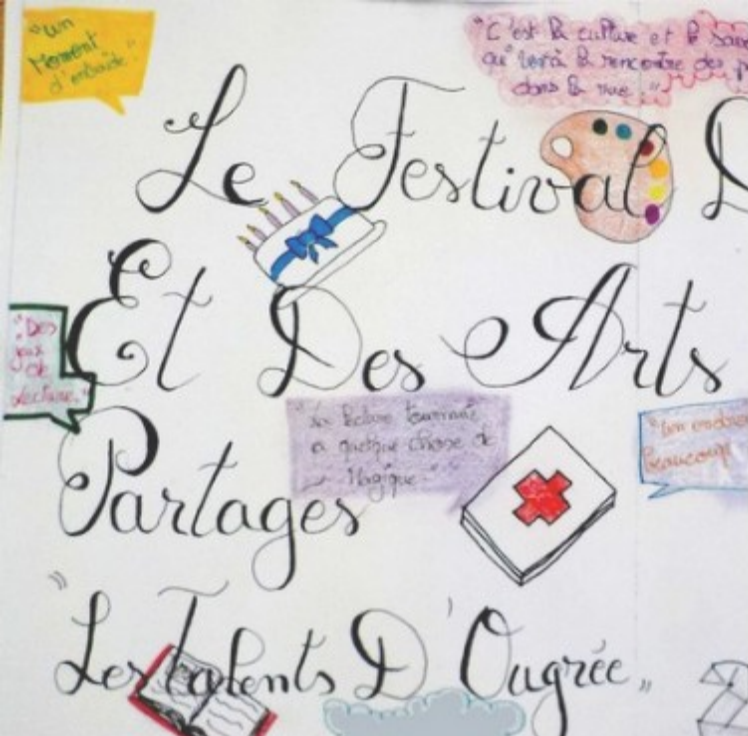 "Un
Moment
d'entraide."
"C'est la culture et le
qu' la rencontre des
dans la rue."
Le Festival D
Et Des Arts
"Des
jeux
de
Lecture."
"La lecture tournait
a quelque chose de
Magique."
Beaucoup
Partages
"Les Talents D'Ougrée"